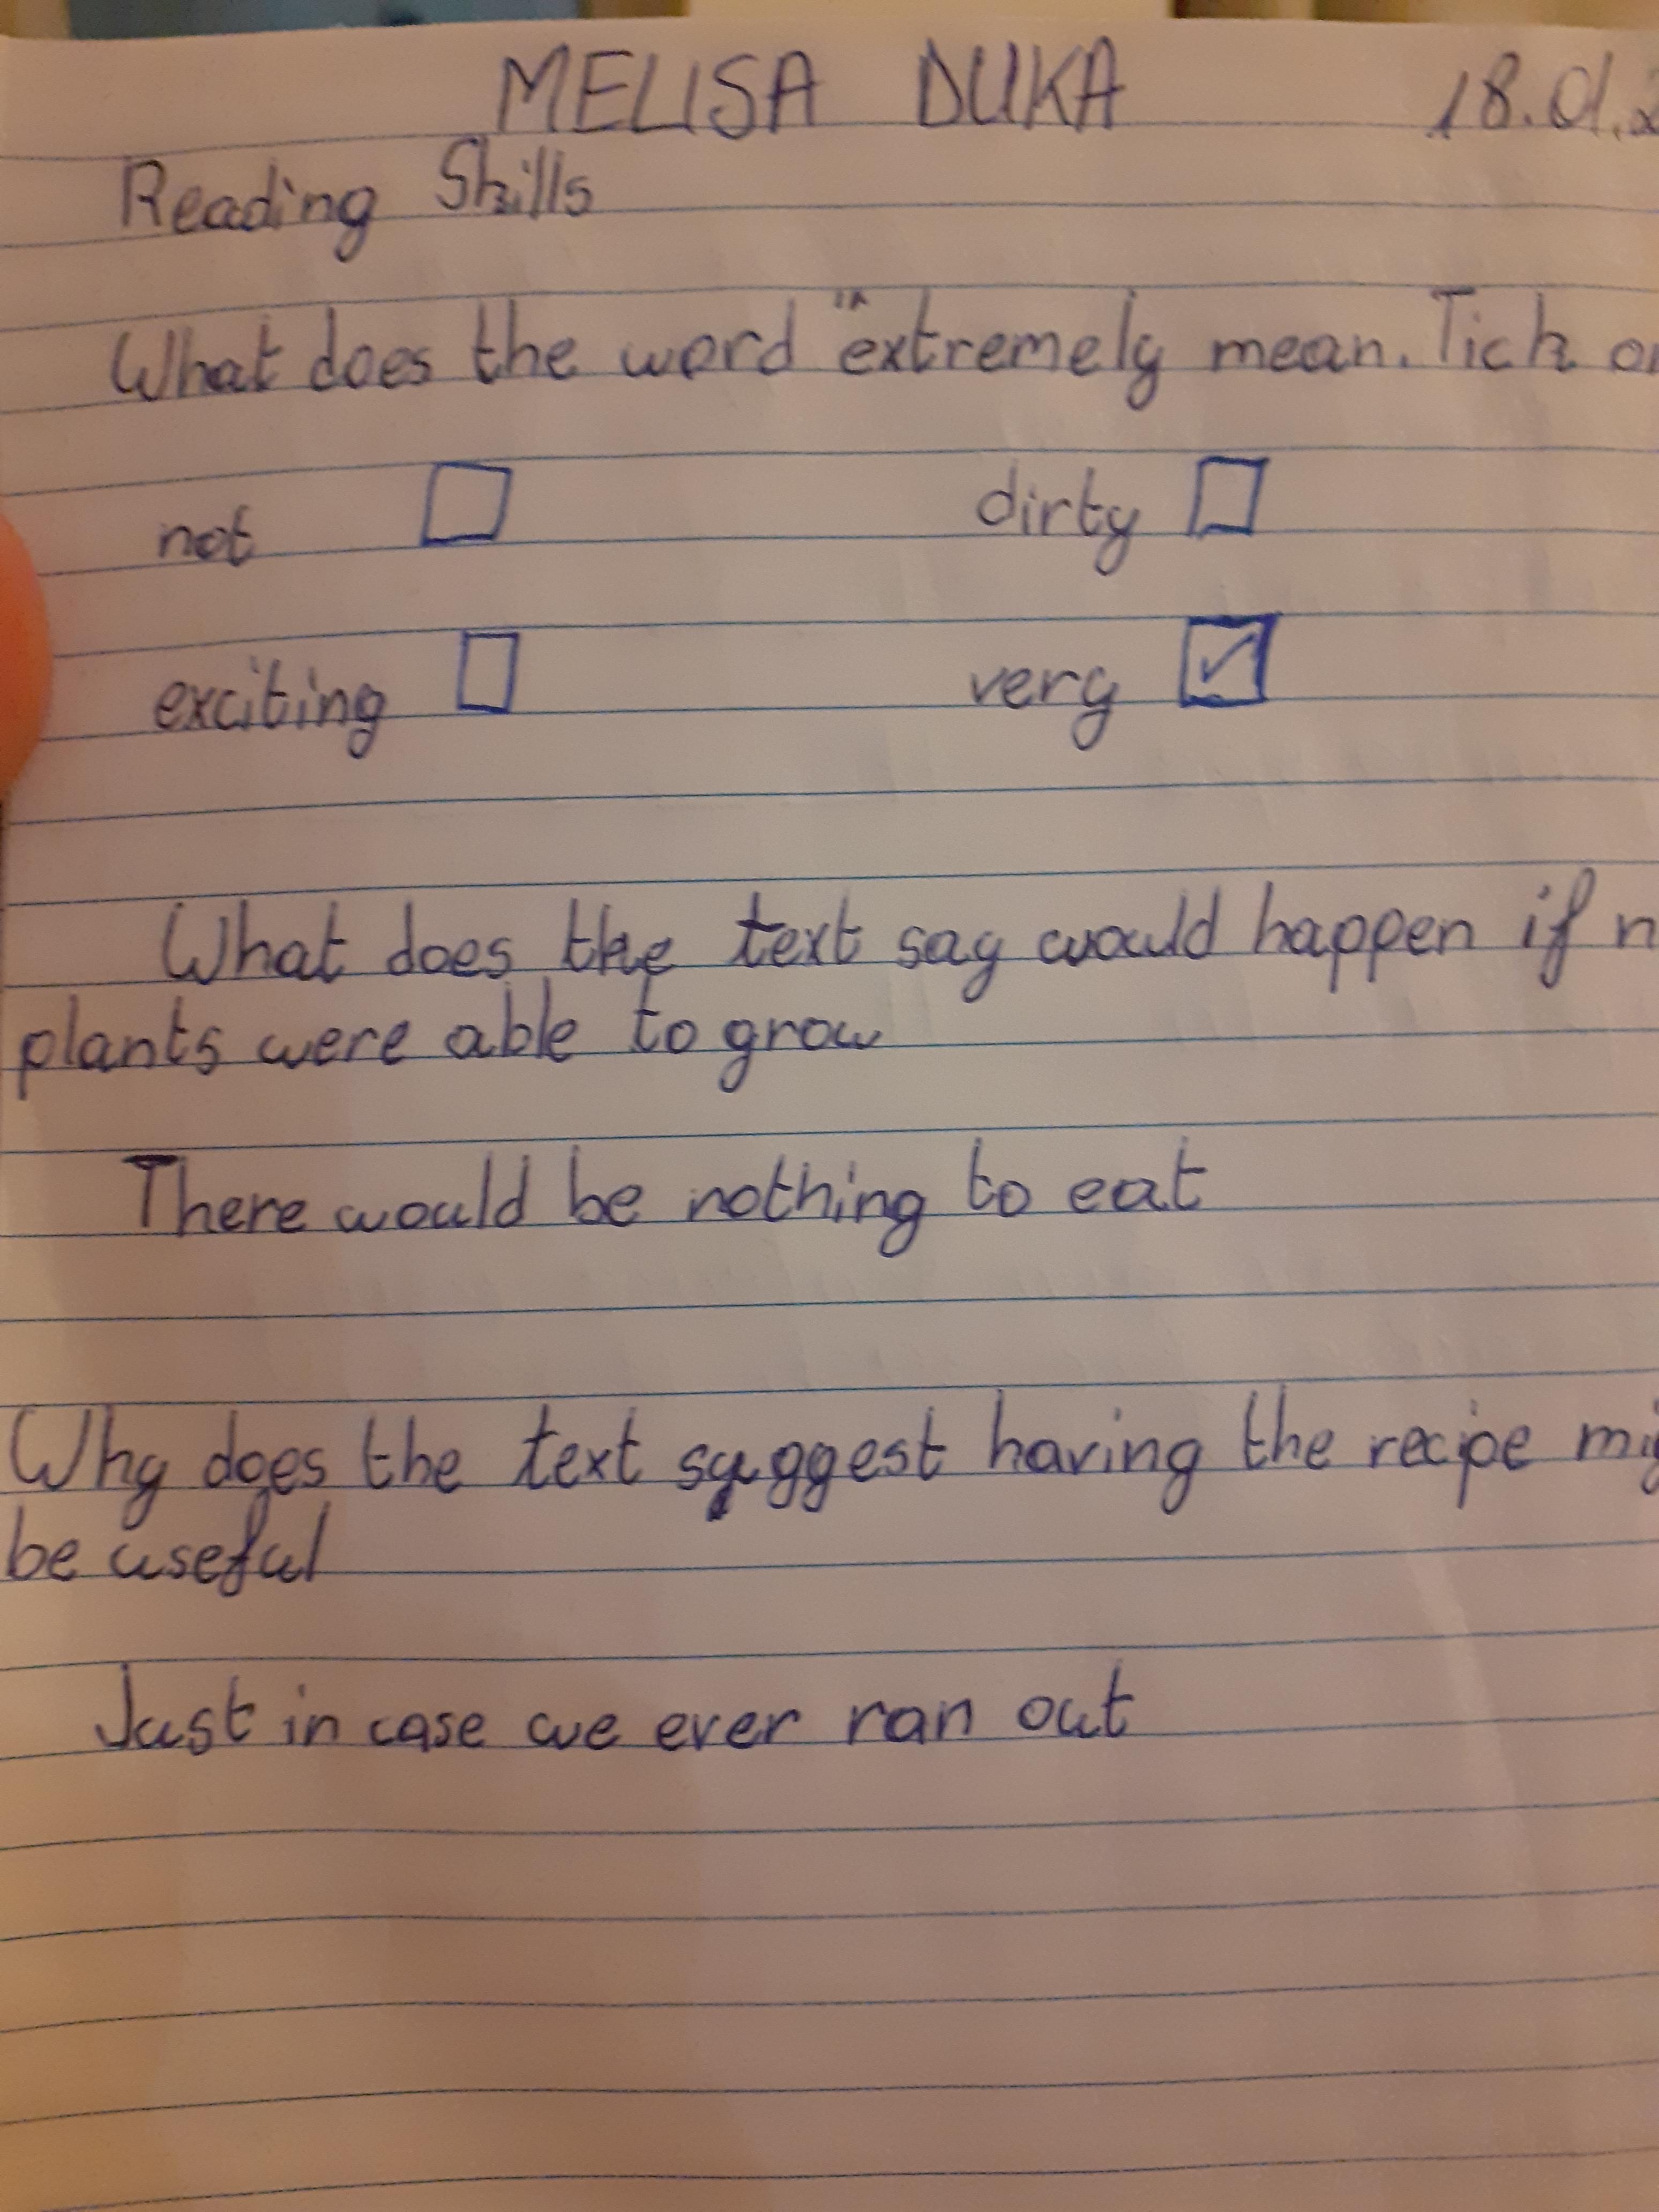 MELISA DUKA 18.01.2
Reading Skills
What does the word "extremely mean. Tick
not ☐ dirty ☐
exciting ☐ very ☑
What does the text say would happen if n
plants were able to grow
There would be nothing to eat
Why does the text suggest having the recipe mig
be useful
Just in case we ever ran out